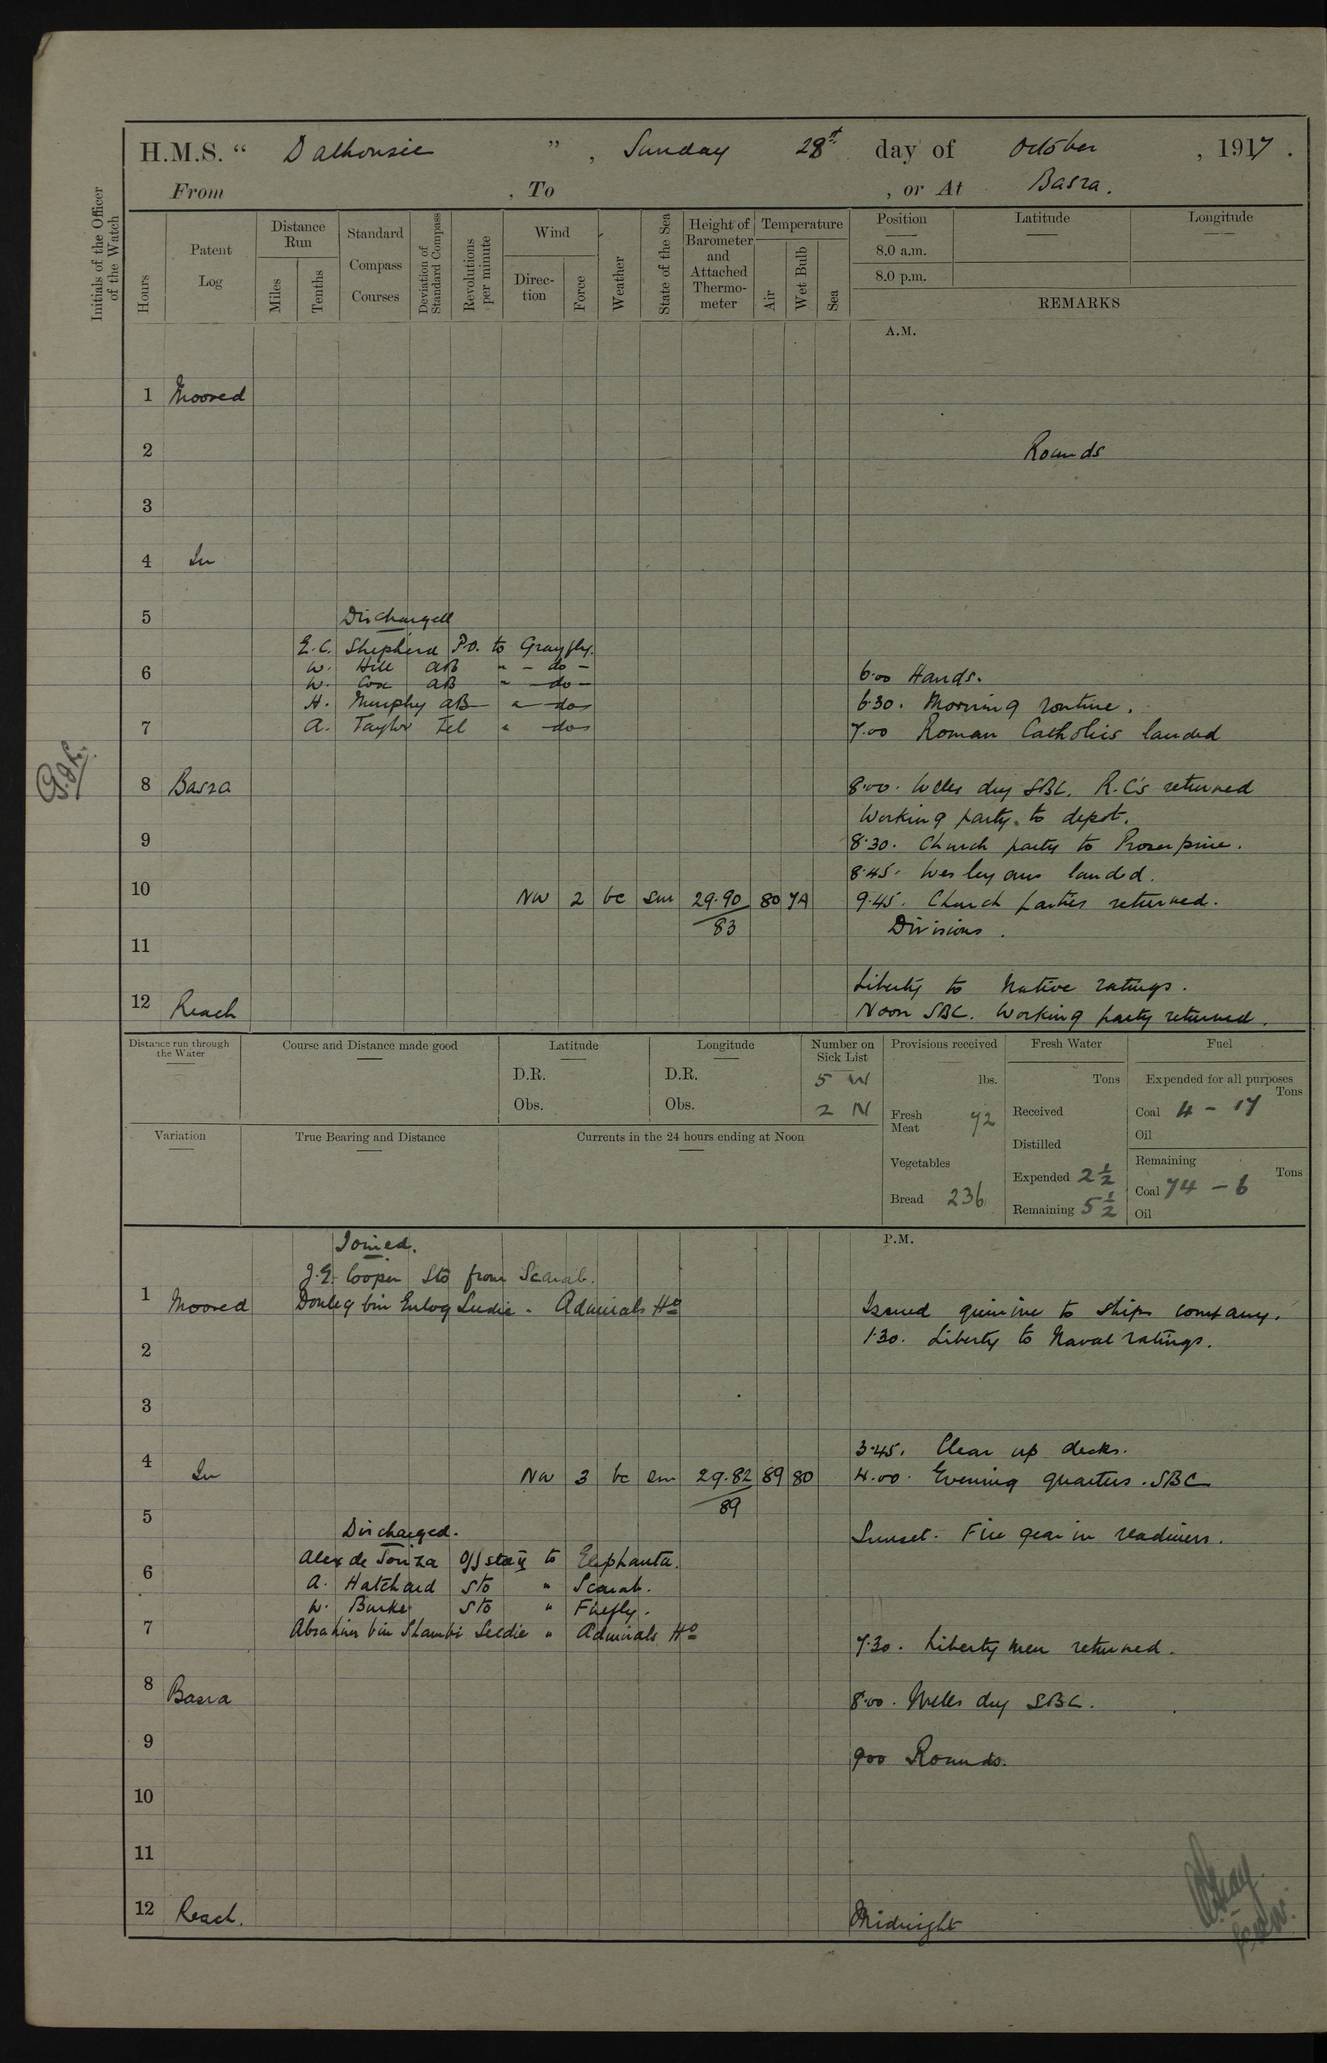 H.M.S. " Dalhousie " , Sunday 28st. day of October , 1917 .
From , To , or At Basra.
Initials of the Officer of the Watch
Hours
Patent Log
Distance Run
Miles
Tenths
Standard Compass Courses
Deviation of Standard Compass
Revolutions per minute
Wind
Direction
Force
Weather
State of the Sea
Height of Barometer and Attached Thermometer
Temperature
Air
Wet Bulb
Sea
Position Latitude Longitude
8.0 a.m.
8.0 p.m.
REMARKS
A.M.
1 Moored
2 Rounds
3
4 In
5 Discharged
E.C. Shepherd P.O. to Grayfly.
W. Hill AB " - do -
6 6.00 Hands.
W. Cox AB " - do -
H. Murphy AB " - do - 6.30. Morning routine.
7 A. Taylor Tel " - do - 7.00 Roman Catholics landed
8 Basra 8.00. Wells dry SBC. R.C's returned
Working party to depot.
9 8.30. Church party to Proserpine.
8.45. Wesleyans landed.
10 NW 2 bc sm 29.90 80 74 9.45. Church parties returned.
83 Divisions.
11
Liberty to Native ratings.
12 Reach Noon SBC. Working party returned.
Distance run through the Water
Course and Distance made good
Latitude
D.R.
Obs.
Longitude
D.R.
Obs.
Number on Sick List
5 W
2 N
Provisions received
lbs.
Fresh Meat 72
Vegetables
Bread 236
Fresh Water
Tons
Received
Distilled
Expended 2½
Remaining 5½
Fuel
Expended for all purposes
Tons
Coal 4 - 17
Oil
Remaining
Tons
Coal 74 - 6
Oil
Variation
True Bearing and Distance
Currents in the 24 hours ending at Noon
P.M.
Joined.
J.E. Cooper Sto from Scarab.
1 Moored bin Seedie - Admirals Ho Issued quinine to ships company.
2 1.30. Liberty to Naval ratings.
3
3.45. Clear up decks.
4 In NW 3 bc sm 29.82 89 80 4.00. Evening quarters. SBC
89
5 Discharged. Sunset. Fire gear in readiness.
Alex de Souza Off std II to Elephanta.
6 A. Hatchard Sto " Scarab.
W. Burke Sto " Firefly.
7 Abrahim bin Shambi Seedie " Admirals Ho
7.30. Liberty men returned.
8 Basra 8.00. Wells dry SBC.
9 9.00 Rounds.
10
11
12 Reach. Midnight